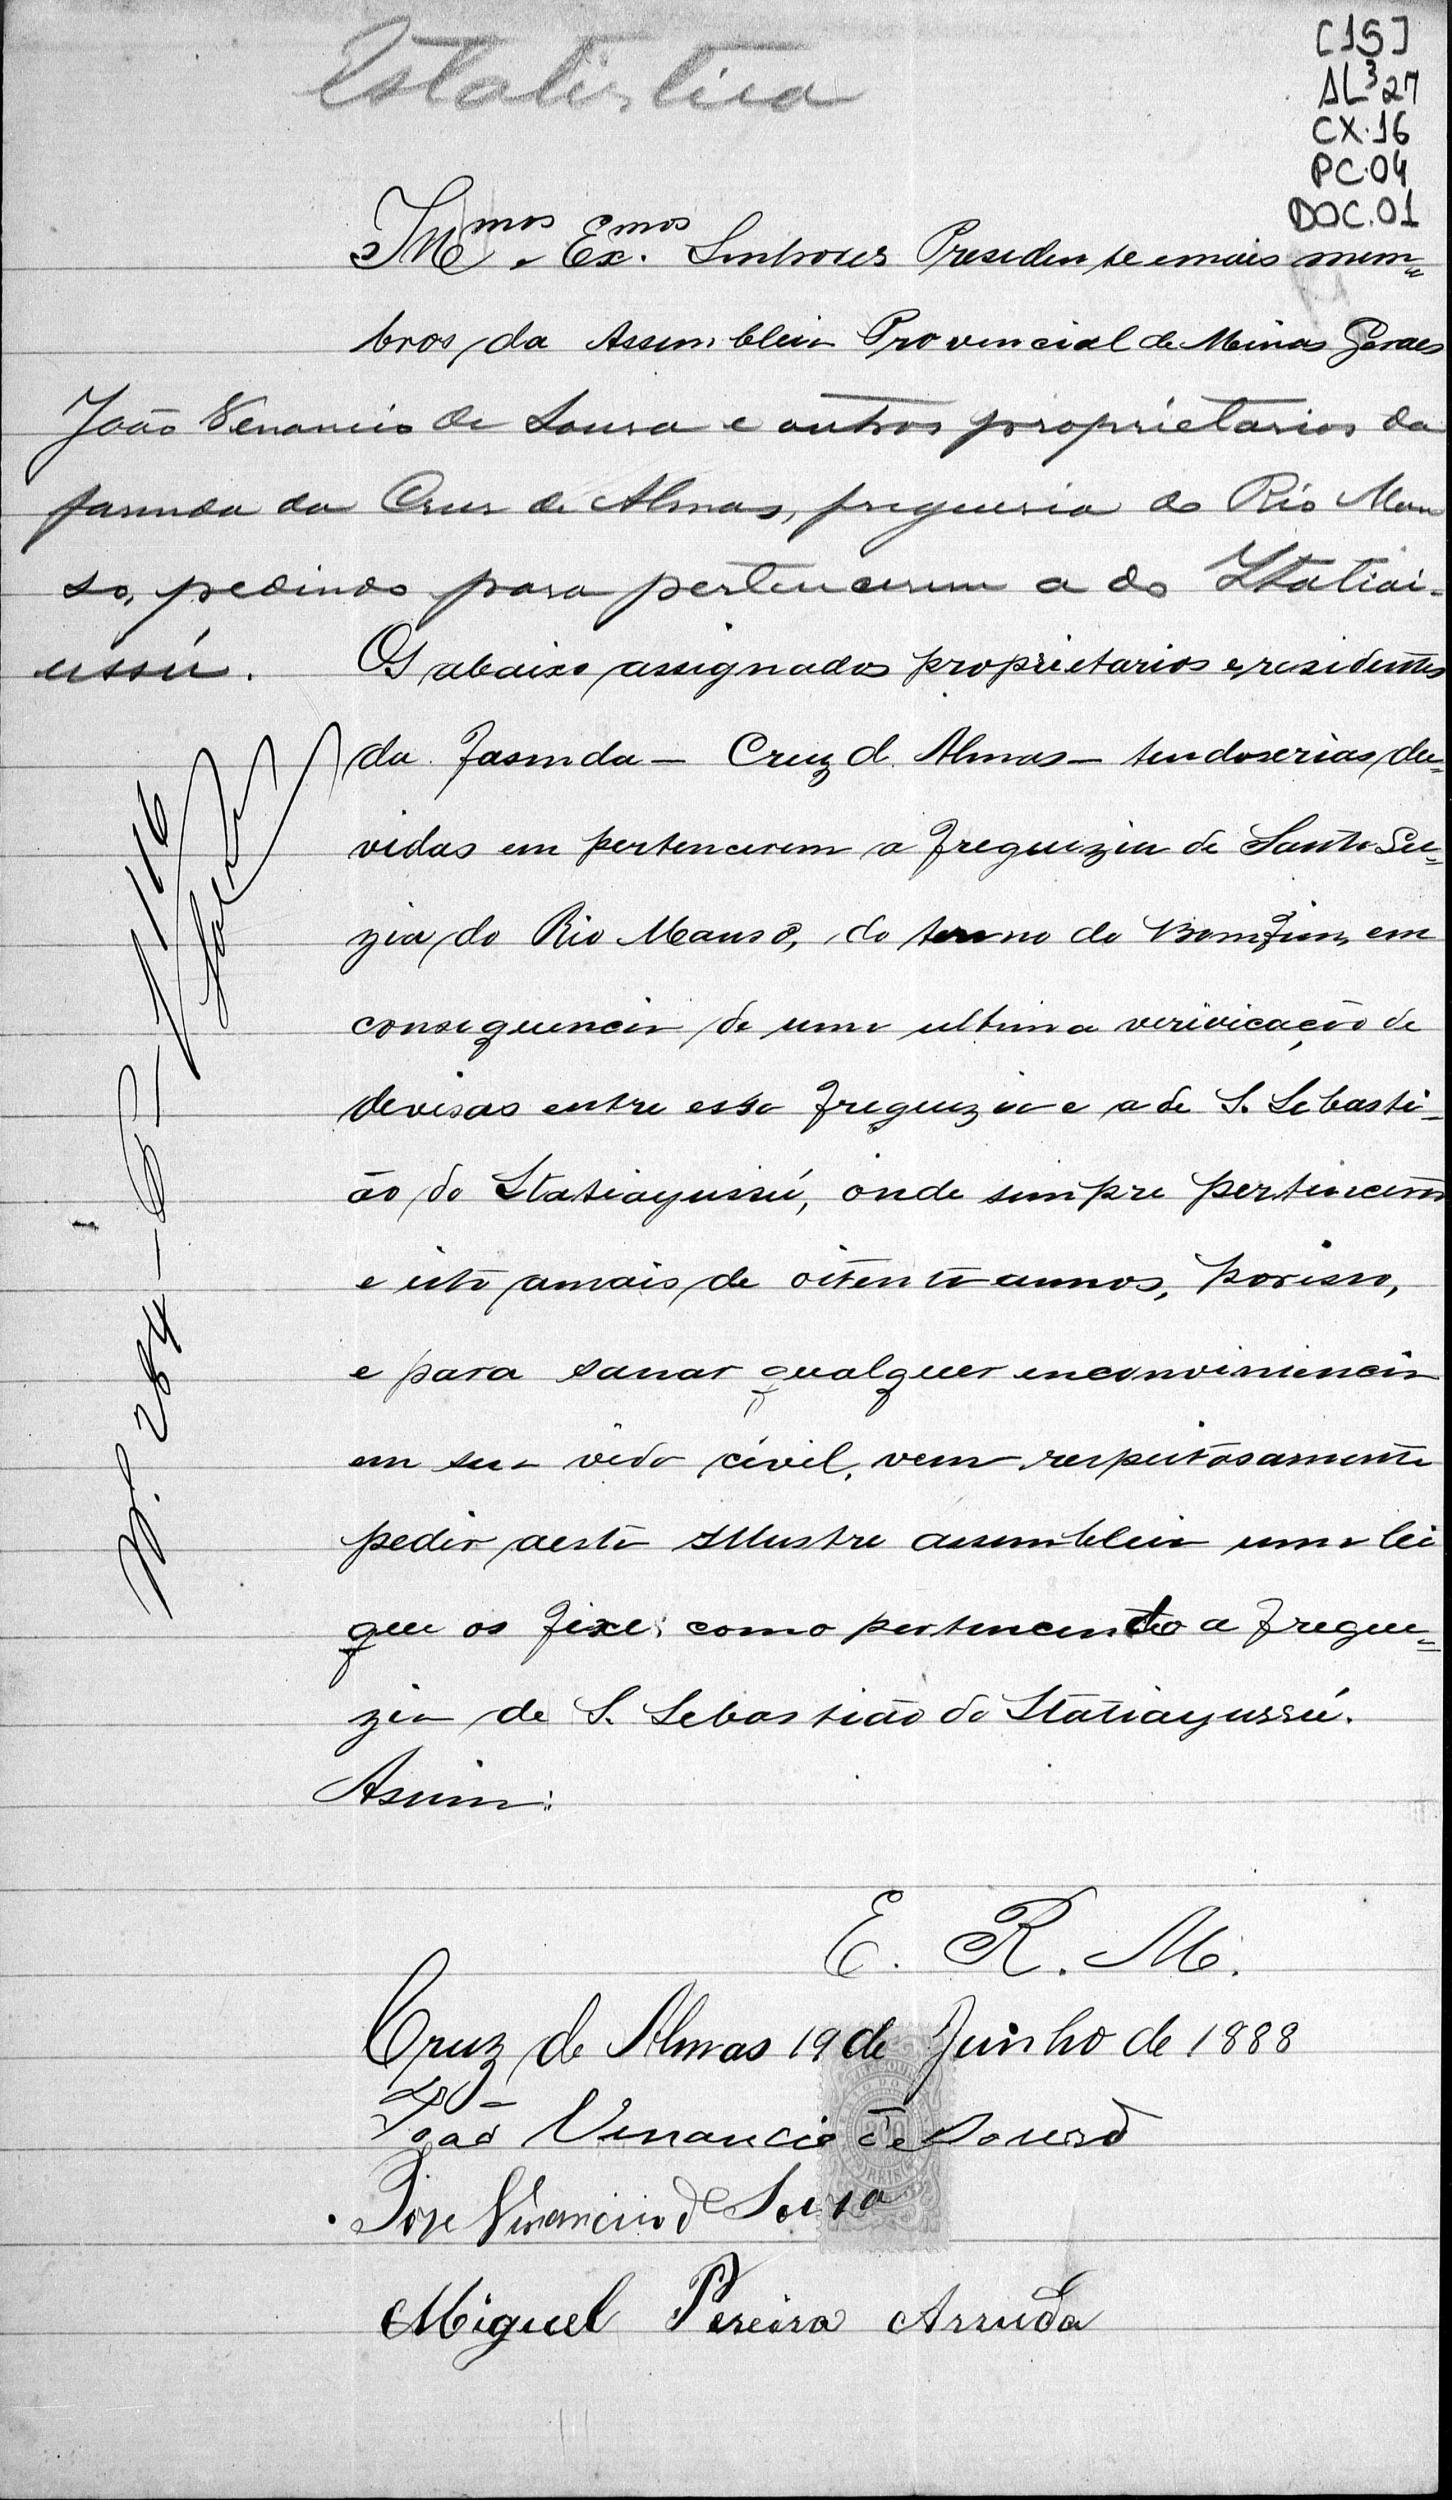 Estatistica
[15]
AL³27
CX.16
PC.04
DOC.01
Illmos e Exmos. Senhores Presidente e mais mem=
bros, da Assembleia Provincial de Minas Geraes
João Venancio de Sousa e outros proprietarios da
fasenda da Crus de Almas, freguesia do Rio Man
so, pedindo para pertencerem a do Itatiai-
ussú.
Os abaixo assignados proprietarios e residentes
da Fasenda — Cruz d. Almas — tendo serias du=
vidas em pertencerem a freguezia de Santa Lu=
zia do Rio Manso, do termo do Bomfim, em
consequencia de uma ultima verivicação de
devisas entre essa freguezia e a de S. Sebasti-
ão do Itatiayussú, onde sempre pertencem
e isto amais de oitenta annos, porisso,
e para sanar qualquer inconviniencia
em sua vida civil, vem respeitosamente
pedir aesta Illustre assembleia uma lei
que os fixe como pertencendo a fregue=
zia de S. Sebastião do Itatiayussú.
Assim:
E. R. M.
Cruz de Almas 19 de Junho de 1888
João Venancio de Sousa
Jose Venancio d Sousa
Miguel Pereira Arruda
Nº 284 — CP — 1116
200
REIS